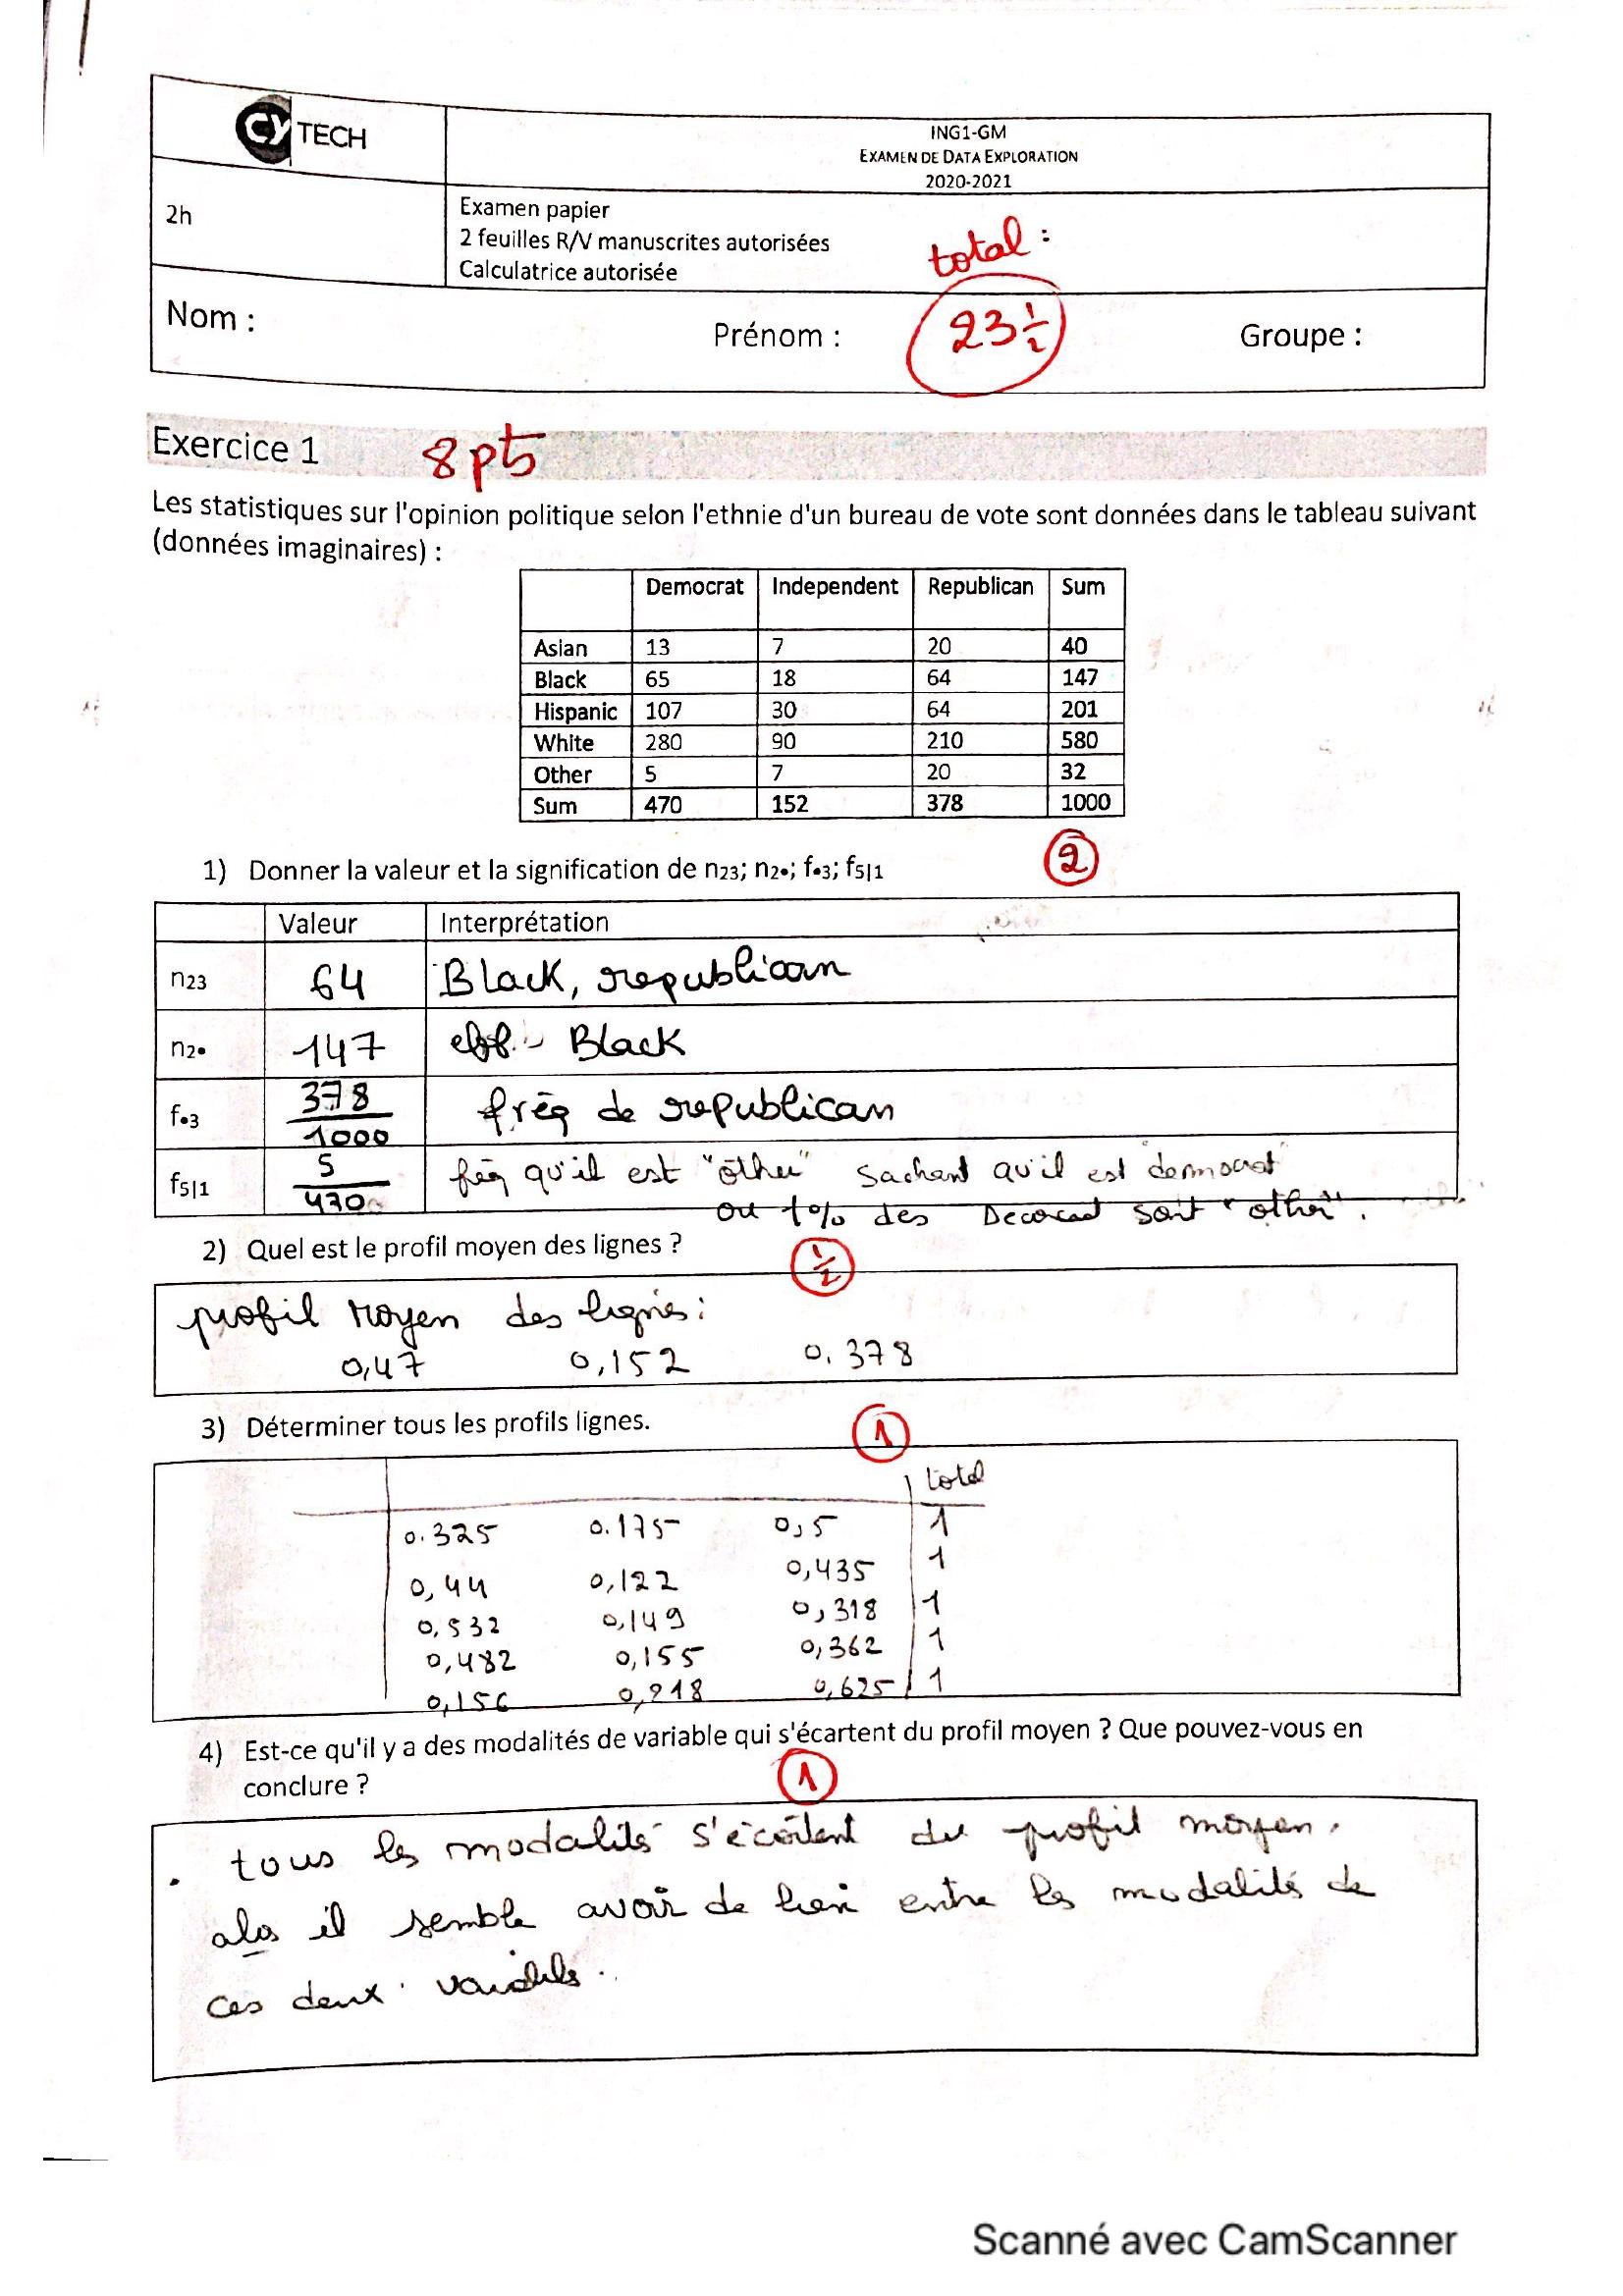 CY TECH
ING1-GM
EXAMEN DE DATA EXPLORATION
2020-2021
2h
Examen papier
2 feuilles R/V manuscrites autorisées
Calculatrice autorisée
total :
23 1/2
Nom :
Prénom :
Groupe :
Exercice 1
8 pts
Les statistiques sur l'opinion politique selon l'ethnie d'un bureau de vote sont données dans le tableau suivant
(données imaginaires) :
Democrat Independent Republican Sum
Asian 13 7 20 40
Black 65 18 64 147
Hispanic 107 30 64 201
White 280 90 210 580
Other 5 7 20 32
Sum 470 152 378 1000
1) Donner la valeur et la signification de n23; n2•; f•3; f5|1
2
Valeur Interprétation
n23 64 Black, republican
n2• 147 eff. Black
f•3 378/1000 fréq de republican
f5|1 5/470 fréq qu'il est "other" sachant qu'il est democrat
ou 1% des sont "other".
2) Quel est le profil moyen des lignes ?
1/2
profil moyen des lignes :
0,47 0,152 0.378
3) Déterminer tous les profils lignes.
1
total
0.325 0.175 0,5 1
0,44 0,122 0,435 1
0,532 0,149 0,318 1
0,482 0,155 0,362 1
0,156 0,218 0,625 1
4) Est-ce qu'il y a des modalités de variable qui s'écartent du profil moyen ? Que pouvez-vous en
conclure ?
1
. tous les modalités s'écartent du profil moyen.
alos il semble avoir de lien entre les modalités de
ces deux variables.
Scanné avec CamScanner